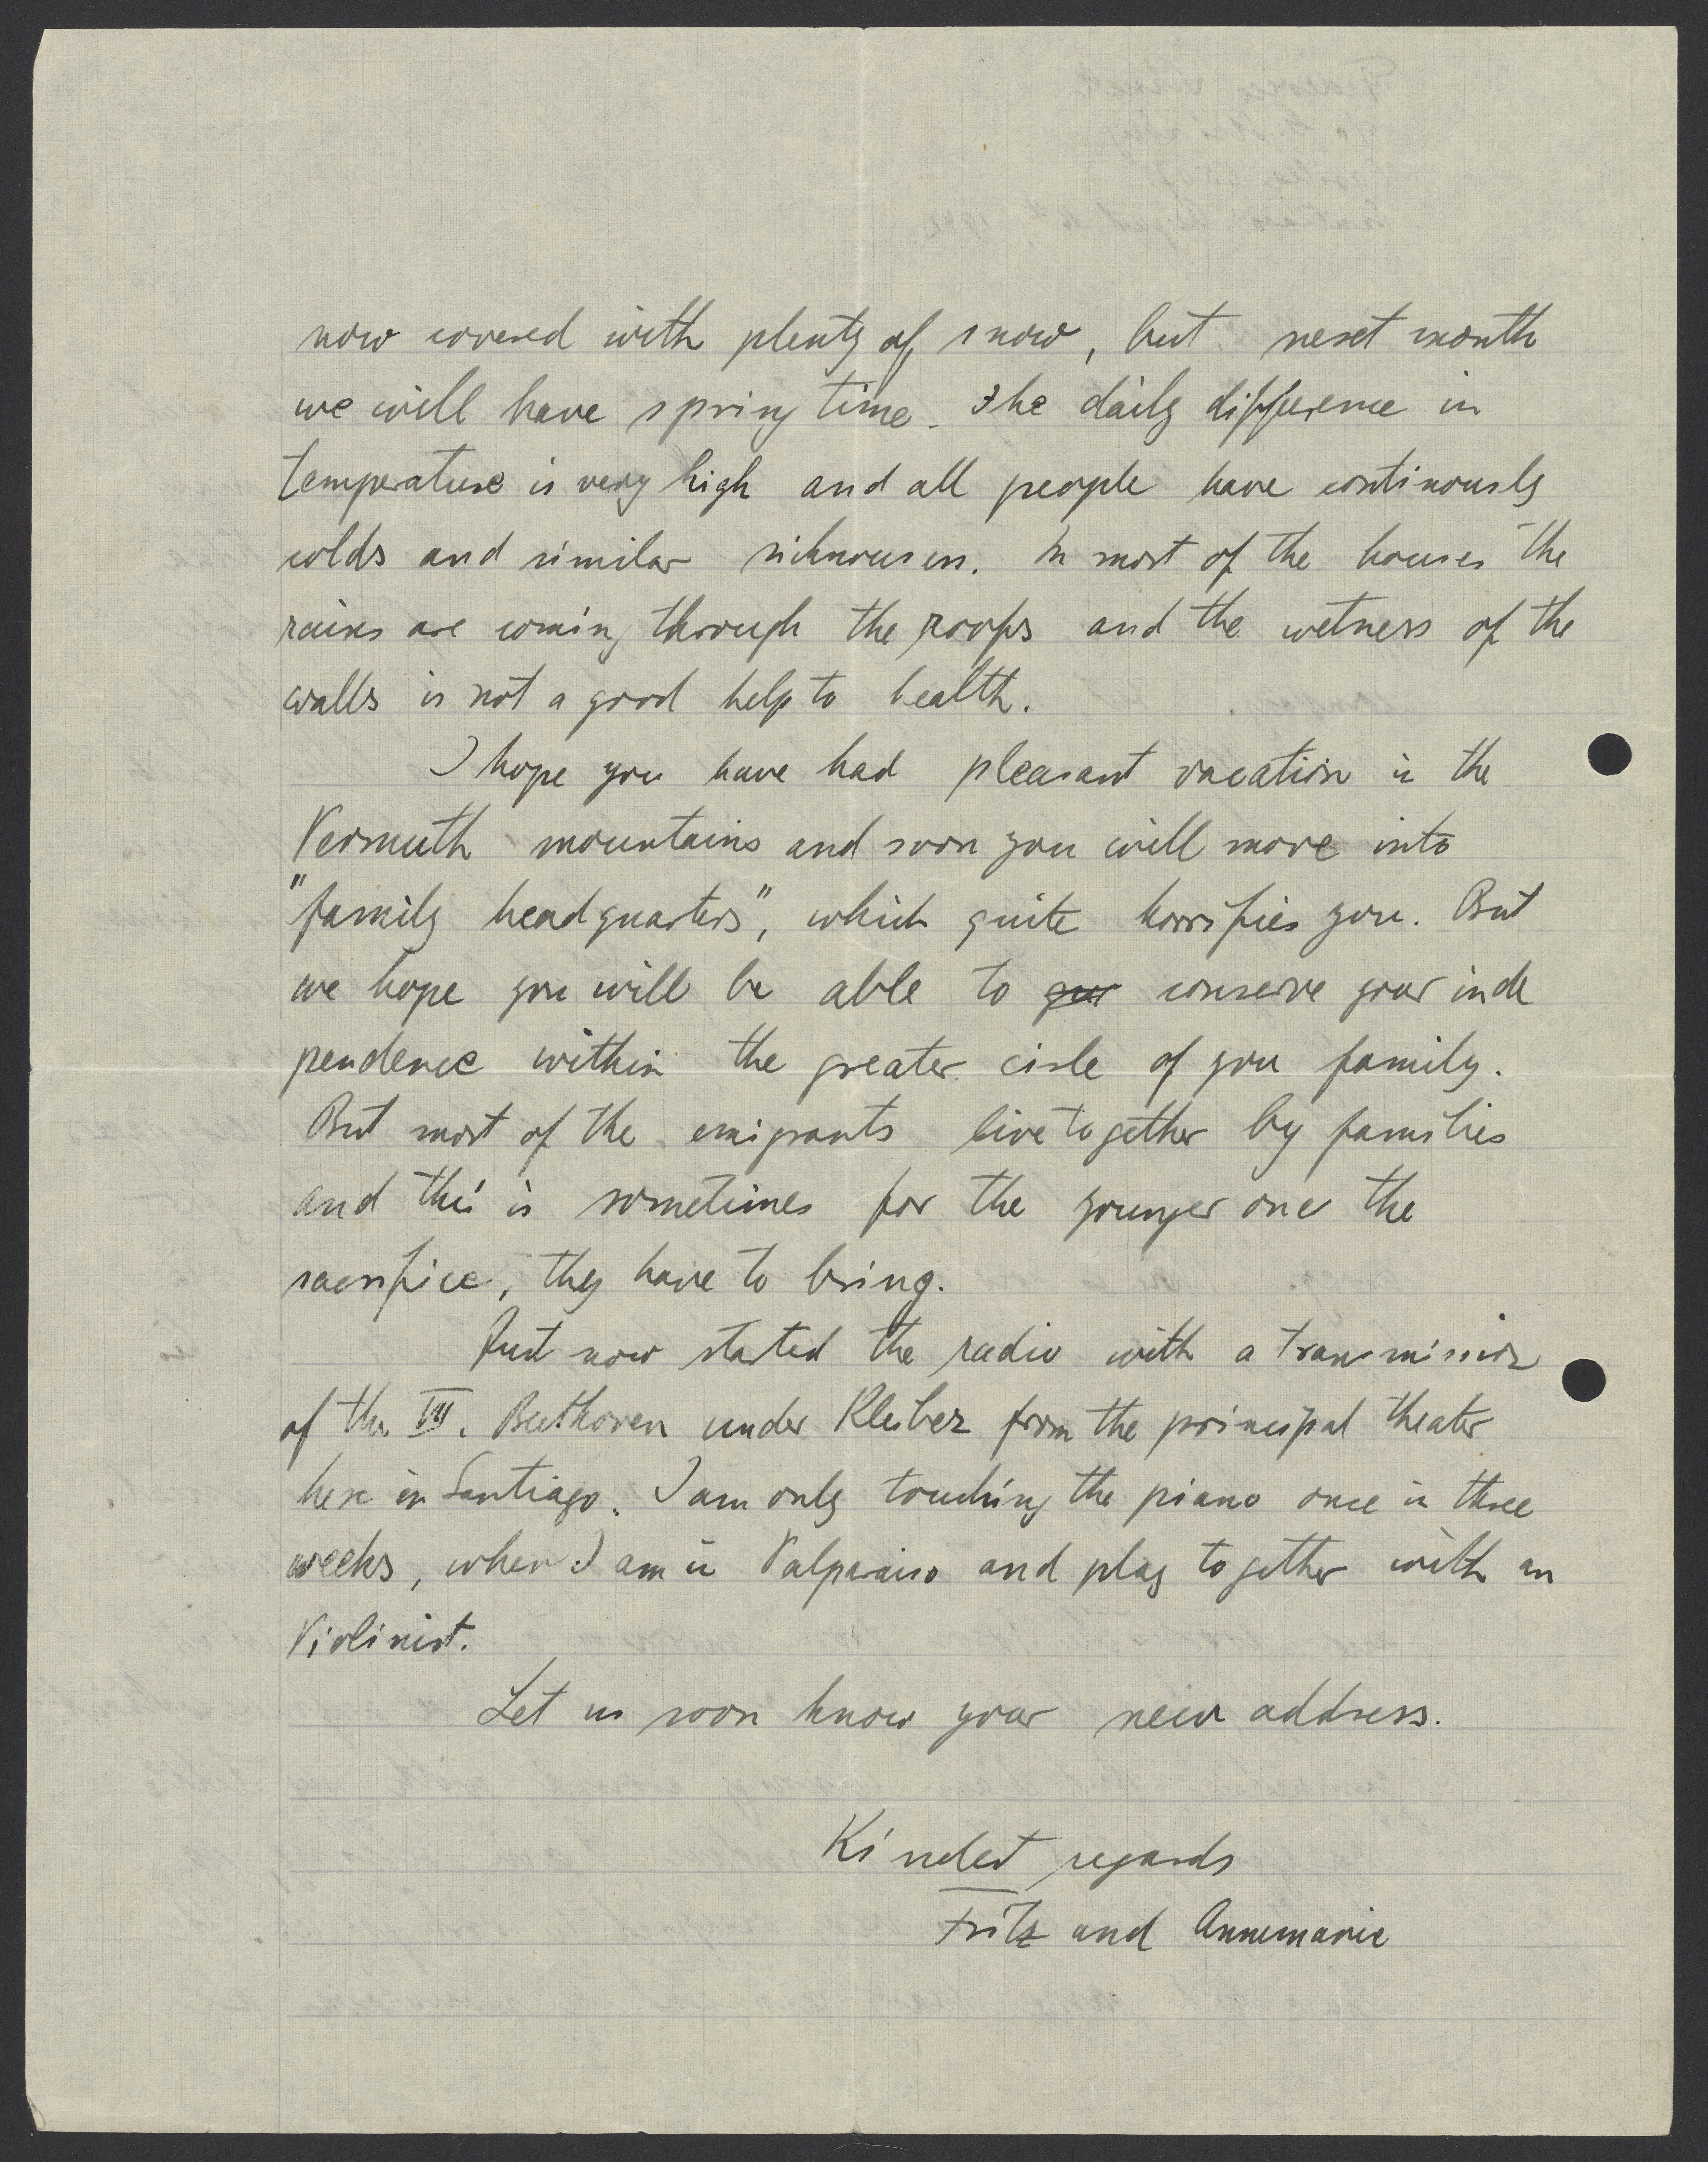 now covered with plenty of snow, but next month
we will have spring time. The daily difference in
temperature is very high and all people have continously
colds and similar sicknouses. In most of the houses the
rains are coming through the roofs and the wetness of the
walls is not a good help to health.
I hope you have had pleasant vacation in the
Vermuth mountains and soon you will move into
"family headquarters", which quite horrifies you. But
we hope you will be able to conserve your inde
pendence within the greater circle of you family.
But most of the emigrants live together by families
and this is sometimes for the younger one the
sacrifice, they have to bring.
Just now started the radio with a transmission
of the VII. Beethoven under Kleiber from the principal theater
here in Santiago. I am only touching the piano once in three
weeks, when I am in Valparaiso and play together with an
Violinist.
Let us soon know your new address.
Kindest regards
Fritz and Annemarie